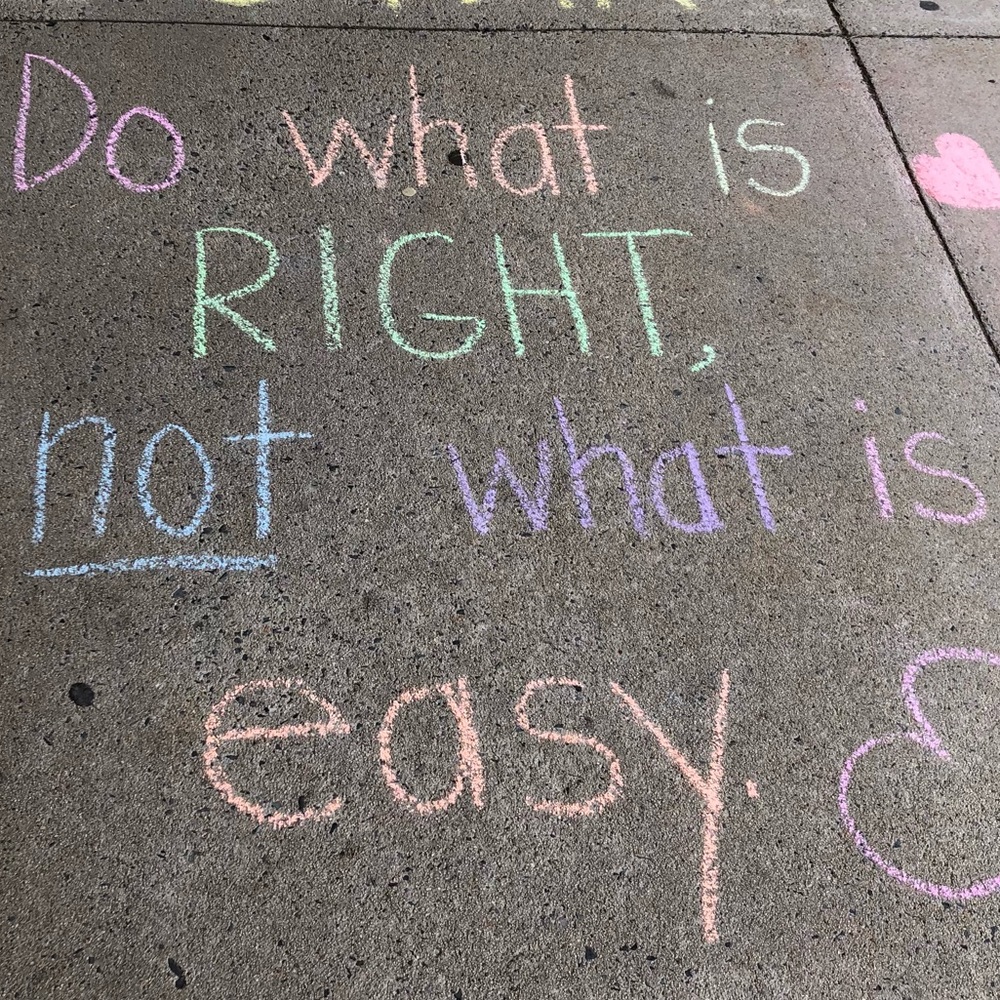 Do what is
RIGHT,
not what is
easy.